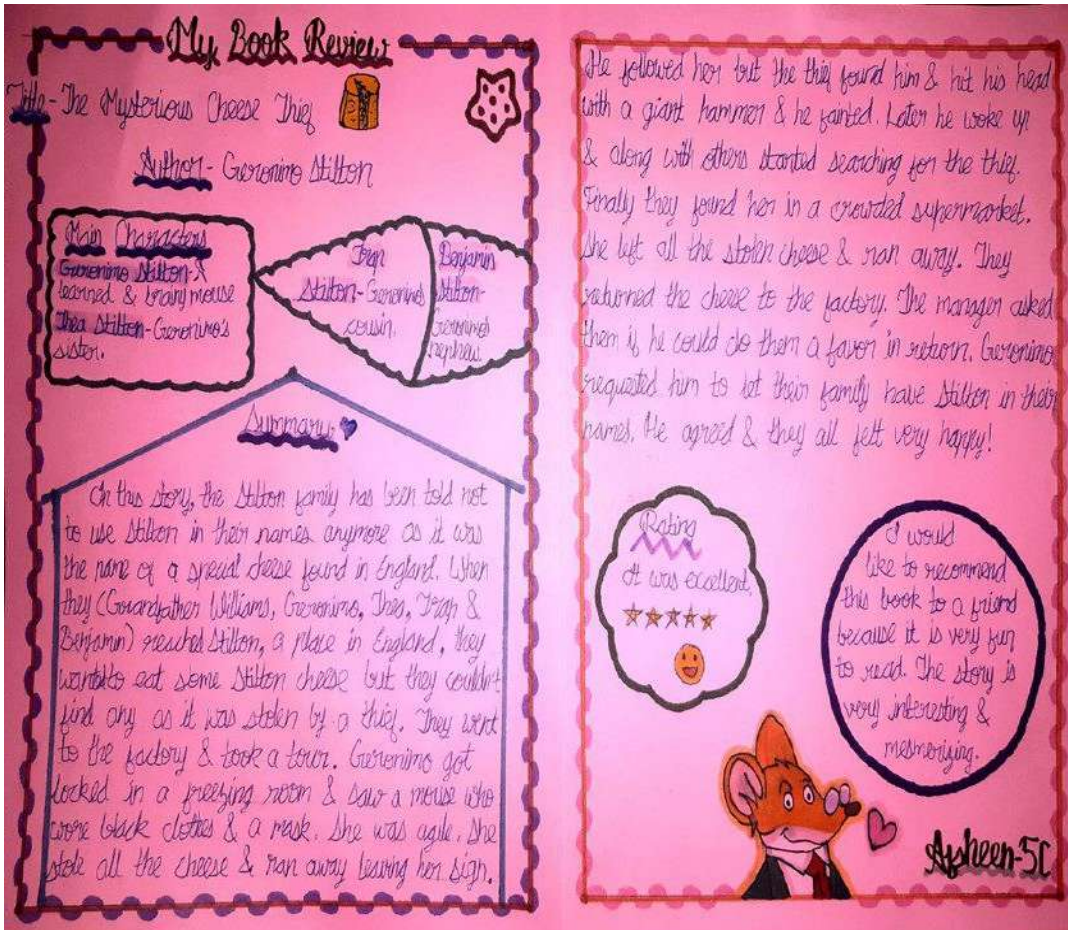 My Book Review
Title - The Mysterious Cheese Thief
Author - Geronimo Stilton
Main Characters
Geronimo Stilton - A
learned & brainy mouse
Thea Stilton - Geronimo's
sister.
Trap
Stilton - Geronimo's
cousin.
Benjamin
Stilton -
Geronimo's
nephew.
Summary
In this story, the Stilton family has been told not
to use Stilton in their names anymore as it was
the name of a special cheese found in England. When
they (Grandfather Williams, Geronimo, Thea, Trap &
Benjamin) reached Stilton, a place in England, they
wanted to eat some Stilton cheese but they couldn't
find any as it was stolen by a thief. They went
to the factory & took a tour. Geronimo got
locked in a freezing room & saw a mouse who
wore black clothes & a mask. She was agile. She
stole all the cheese & ran away leaving her sign.
He followed her but the thief found him & hit his head
with a giant hammer & he fainted. Later he woke up
& along with others started searching for the thief.
Finally they found her in a crowded supermarket.
She left all the stolen cheese & ran away. They
returned the cheese to the factory. The manager asked
them if he could do them a favor in return. Geronimo
requested him to let their family have Stilton in their
names. He agreed & they all felt very happy!
Rating
It was excellent.
I would
like to recommend
this book to a friend
because it is very fun
to read. The story is
very interesting &
mesmerizing.
Afsheen-5C